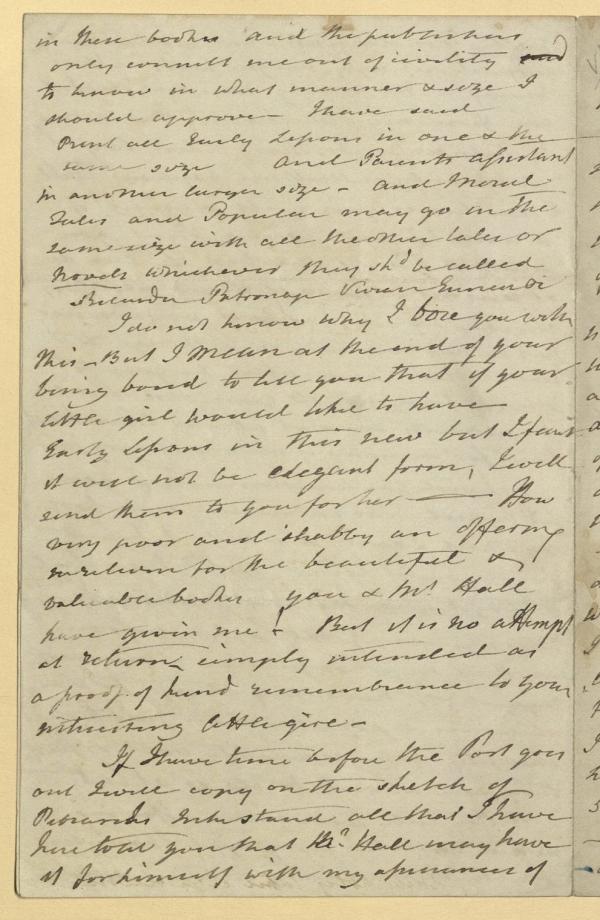 in these books and the publishers
only consult me out of civility and
to know in what manner & size I
should approve – I have said
Print all Early Lessons in one & the
same size and Parents assistant
in another larger size – and Moral
Tales and Popular may go in the
same size with all the other tales or
Novels whichever they shd be called
Belinda Patronage Vivian Ennui &c
I do not know why I bore you with
this – But I mean at the end of your
being bored to tell you that if your
little girl would like to have
Early Lessons in this new but I fear
it will not be elegant form, I will
send them to you for her — How
very poor and shabby an offering
in return for the beautiful &
valuable books you & Mr Hall
have given me! But it is no attempt
at return, simply intended as
a proof of kind remembrance to your
interesting little girl –
If I have time before the Post goes
out I will copy on the sketch of
Petrarchs Inkstand all that I have
here told you that Mr Hall may have
it for himself with my assurances of